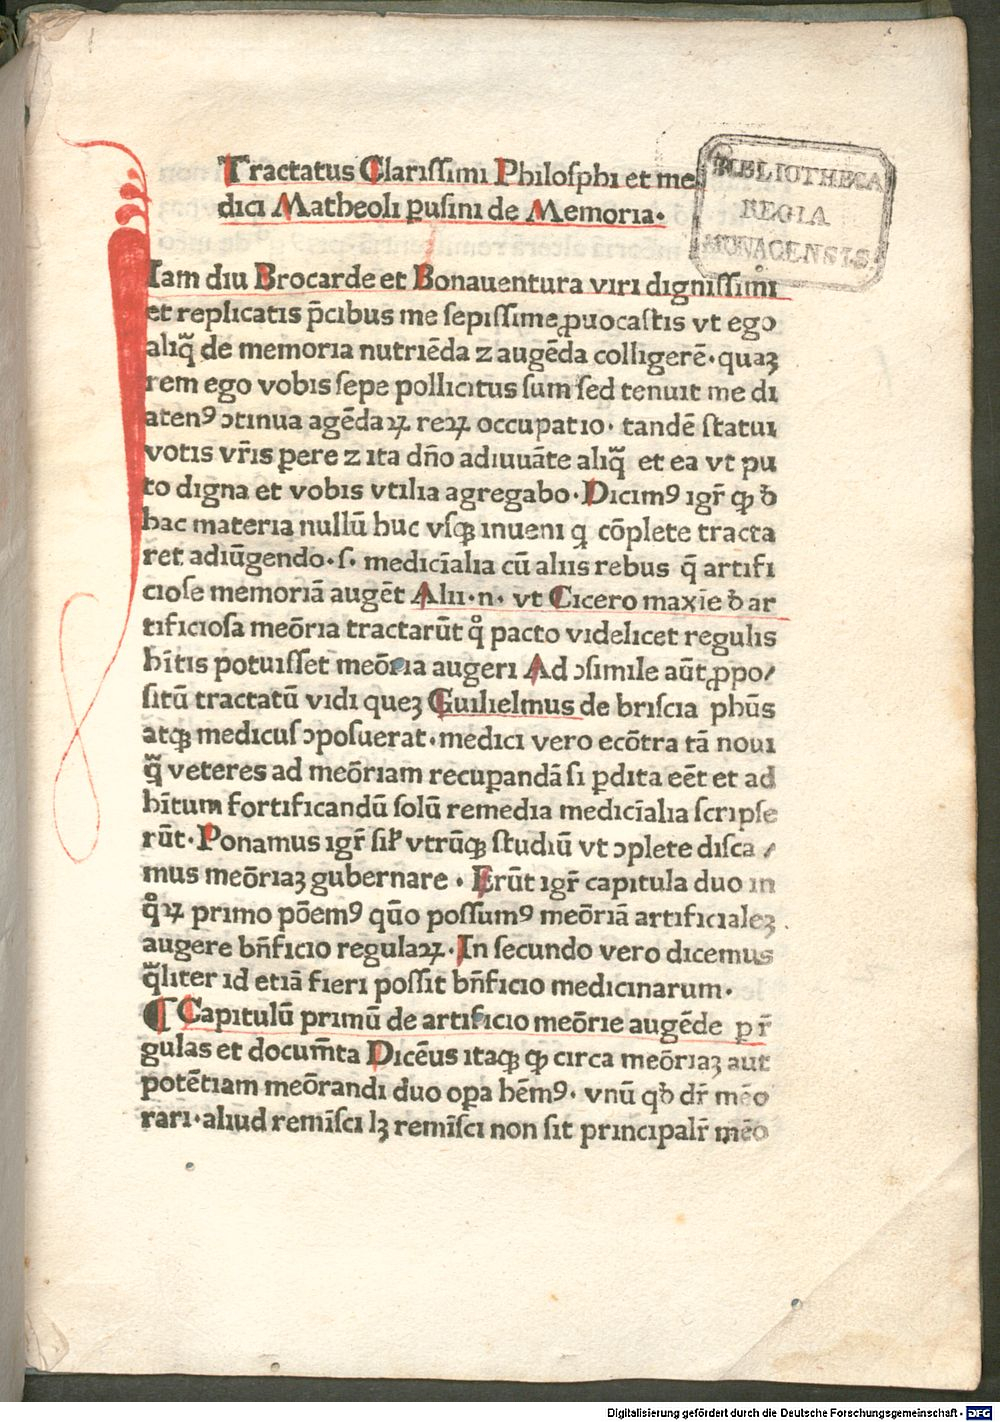 Tractatus Clarissimi Philosphi et me
dici Matheoli pusini de Memoria.
BIBLIOTHECA
REGIA
MONACENSIS.
Iam diu Brocarde et Bonauentura viri dignissimi
et replicatis p̄cibus me sepissime ꝓuocastis vt ego
aliq̃ de memoria nutriēda ⁊ augēda colligerē. quaꝫ
rem ego vobis sepe pollicitus sum sed tenuit me di
atenꝰ ↄtinua agēdaꝝ reꝝ occupatio. tandē statui
votis vr̄is ꝑere ⁊ ita dn̄o adiuuāte aliq̃ et ea vt pu
to digna et vobis vtilia agregabo. Dicimꝰ igr̄ ꝙ đ
hac materia nullū huc vsqꝫ inueni q cōplete tracta
ret adiūgendo. s. medicīalia cū aliis rebus q̄ artifi
ciose memoriā augēt Alii .n. vt Cicero maxīe đ ar
tificiosa meōria tractarūt qͦ pacto videlicet regulis
hītis potuisset meōria augeri Ad ↄsimile aūt ꝓpo/
sitū tractatū vidi queꝫ Guilielmus de briscia phūs
atqꝫ medicus ↄposuerat. medici vero ecōtra tā noui
q̃ veteres ad meōriam recuꝑandā si ꝑdita eēt et ad
hītum fortificandū solū remedia medicīalia scripse
rūt. Ponamus igr̄ sil̄ vtrūqꝫ studiū vt ↄplete disca /
mus meōriaꝫ gubernare . Erūt igr̄ capitula duo in
qͦꝝ primo pōemꝰ quō possumꝰ meōriā artificialeꝫ
augere bn̄ficio regulaꝝ. In secundo vero dicemus
q̃liter id etiā fieri possit bn̄ficio medicinarum.
¶ Capitulū primū de artificio meōrie augēde ꝑ r̄
gulas et docum̄ta Dicēus itaqꝫ ꝙ circa meōriaꝫ aut
potētiam meōrandi duo oꝑa hēmꝰ. vnū qđ dr̄ mēo
rari. aliud remīsci lꝫ remīsci non sit principalr̄ mēo
Digitalisierung gefördert durch die Deutsche Forschungsgemeinschaft - DFG